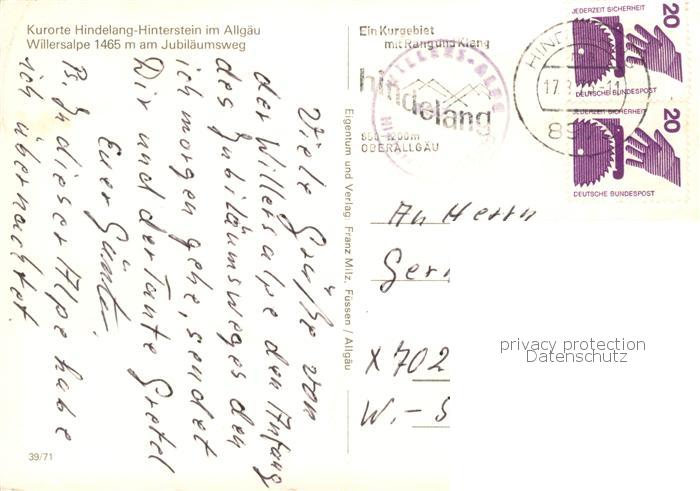 Kurorte Hindelang-Hinterstein im Allgäu
Willersalpe 1465 m am Jubiläumsweg
Viele Grüße von
der Willersalpe den Anfang
des Jubiläumsweges den
ich morgen gehe, sendet
Dir und der Tante Gretel
Euer Günter.
Ps. In dieser Alpe habe
ich übernachtet.
39/71
Eigentum und Verlag: Franz Milz, Füssen / Allgäu
Ein Kurgebiet
mit Rang und Klang
hindelang
850-1200m
OBERALLGÄU
WILLERS-ALPE
HIND
17.8
89
JEDERZEIT SICHERHEIT
20
DEUTSCHE BUNDESPOST
JEDERZEIT SICHERHEIT
20
DEUTSCHE BUNDESPOST
An Herrn
Ger
X 702
W.-S
privacy protection
Datenschutz